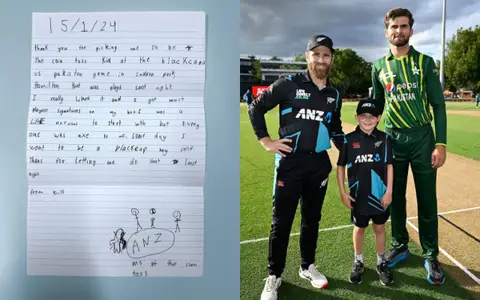 15/1/24
Thank you for picking me to be
The coin toss kid at the blackcaps
vs pakistan game in seddon park,
Hamilton that was played last night.
I really liked it and I got most
players signatures on my bat. I was a
nervous to start with but every
one was nice to me. Some day I
want to be a blackcap my self
Thans for letting me do that last
night.
from will
ANZ
me at the coin
toss
ANZ
ANZ
pepsi
PAKISTAN